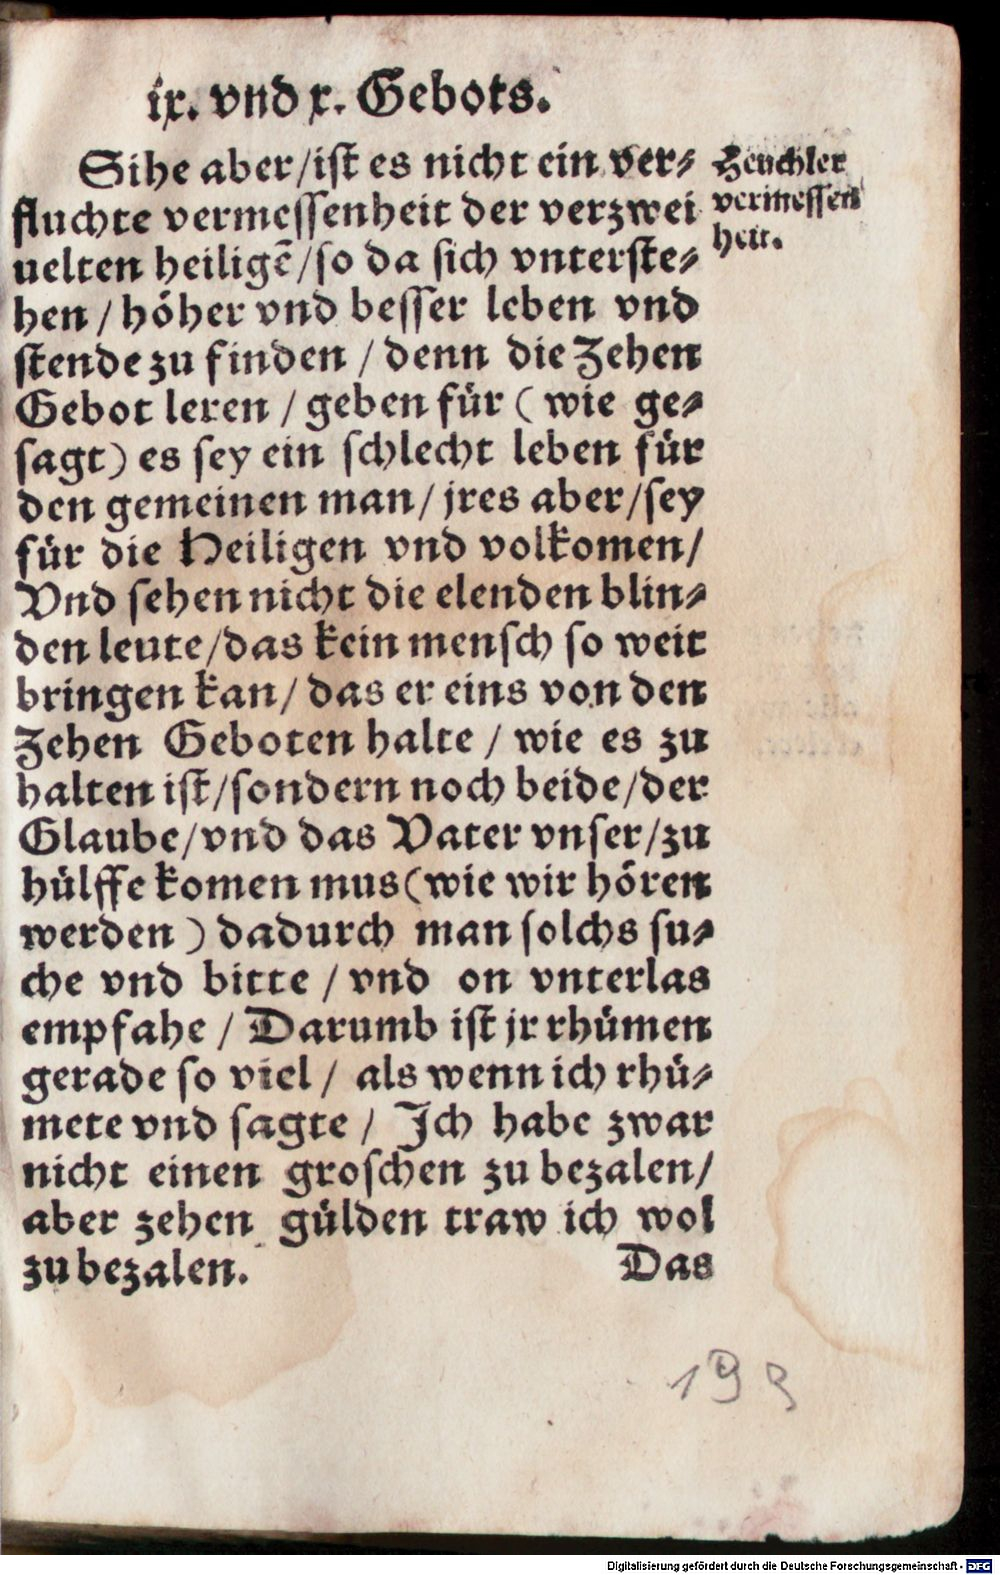 ix. vnd x. Gebots.
Sihe aber/ist es nicht ein ver⸗
fluchte vermessenheit der verzwei
uelten heiligē/so da sich vnterste⸗
hen / höher vnd besser leben vnd
stende zu finden / denn die Zehen
Gebot leren / geben für ( wie ge⸗
sagt) es sey ein schlecht leben für
den gemeinen man/ jres aber/sey
für die Heiligen vnd volkomen/
Vnd sehen nicht die elenden blin⸗
den leute/das kein mensch so weit
bringen kan/ das er eins von den
Zehen Geboten halte / wie es zu
halten ist/sondern noch beide/der
Glaube/vnd das Vater vnser/zu
hülffe komen mus(wie wir hören
werden ) dadurch man solchs su⸗
che vnd bitte / vnd on vnterlas
empfahe / Darumb ist jr rhümen
gerade so viel / als wenn ich rhü⸗
mete vnd sagte / Ich habe zwar
nicht einen groschen zu bezalen/
aber zehen gülden traw ich wol
zu bezalen.
Das
Heuchler
vermessen
heit.
193
Digitalisierung gefördert durch die Deutsche Forschungsgemeinschaft - DFG